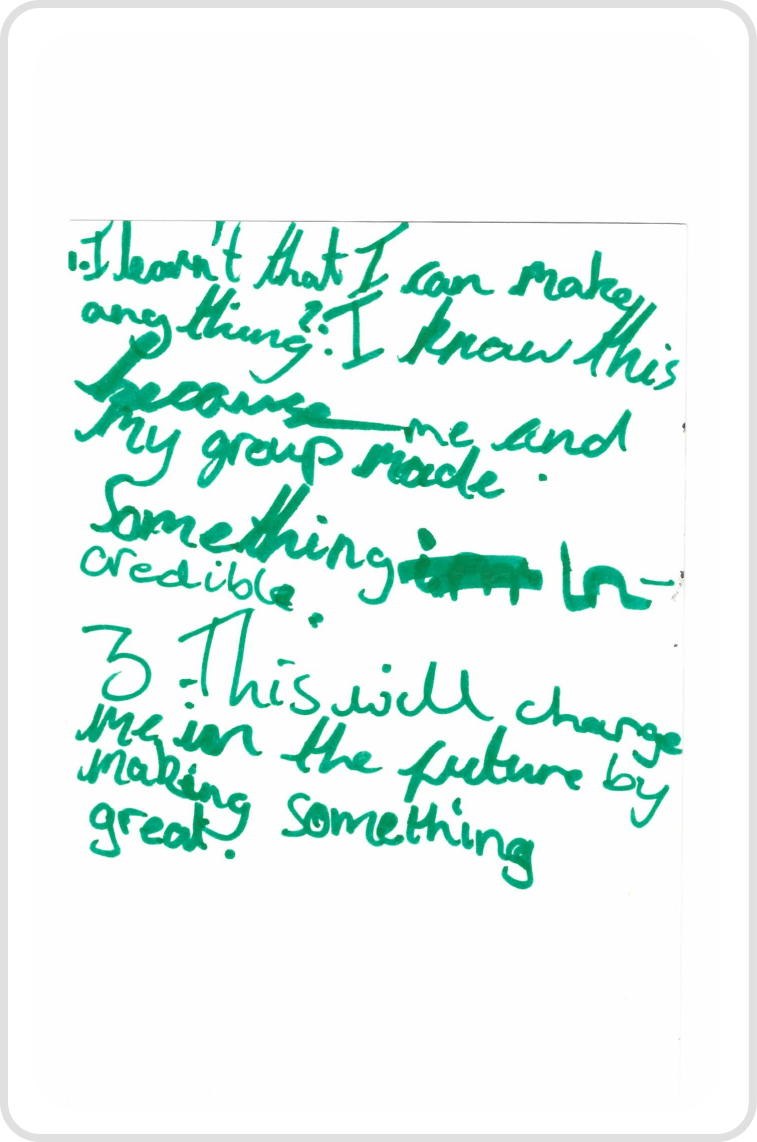 1. I learn't that I can make
anything. 2. I know this
because me and
my group made
something in-
credible.
3. This will change
me in the future by
making something
great.